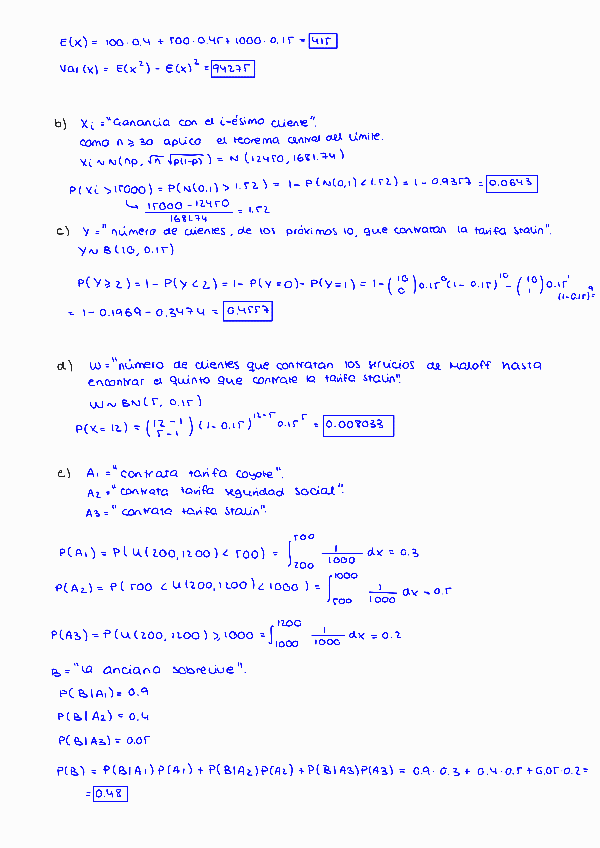 E(X) = 100·0.4 + 500·0.45+ 1000·0.15 = 415
Var(X) = E(X²) - E(X)² = 94275
b) Xi = "Ganancia con el i-ésimo cliente".
como n ≥ 30 aplico el teorema central del límite.
Xi ~ N(np, √n √p(1-p)) = N (12450, 1681.74)
P(Xi > 15000) = P(N(0,1) > 1.52) = 1 - P(N(0,1) < 1.52) = 1 - 0.9357 = 0.0643
↳ (15000 - 12450)/1681.74 = 1.52
c) Y = "número de clientes, de los próximos 10, que contratan la tarifa Stalin".
Y ~ B(10, 0.15)
P(Y ≥ 2) = 1 - P(Y < 2) = 1 - P(Y = 0) - P(Y = 1) = 1 - (10 0) 0.15⁰ (1 - 0.15)¹⁰ - (10 1) 0.15¹ (1-0.15)⁹ =
= 1 - 0.1969 - 0.3474 = 0.4557
d) W = "número de clientes que contratan los servicios de Maloff hasta
encontrar el quinto que contrate la tarifa Stalin".
W ~ BN(5, 0.15)
P(X = 12) = (12 - 1 5 - 1) (1 - 0.15)¹²⁻⁵ 0.15⁵ = 0.008033
e) A1 = "contrata tarifa coyote".
A2 = "contrata tarifa seguridad social".
A3 = "contrata tarifa Stalin".
P(A1) = P(U(200,1200) < 500) = ∫₂₀₀⁵⁰⁰ 1/1000 dx = 0.3
P(A2) = P(500 < U(200,1200) < 1000) = ∫₅₀₀¹⁰⁰⁰ 1/1000 dx = 0.5
P(A3) = P(U(200,1200) ≥ 1000 = ∫₁₀₀₀¹²⁰⁰ 1/1000 dx = 0.2
B = "La anciana sobrevive".
P(B|A1) = 0.9
P(B|A2) = 0.4
P(B|A3) = 0.05
P(B) = P(B|A1)P(A1) + P(B|A2)P(A2) + P(B|A3)P(A3) = 0.9·0.3 + 0.4·0.5 + 0.05·0.2 =
= 0.48